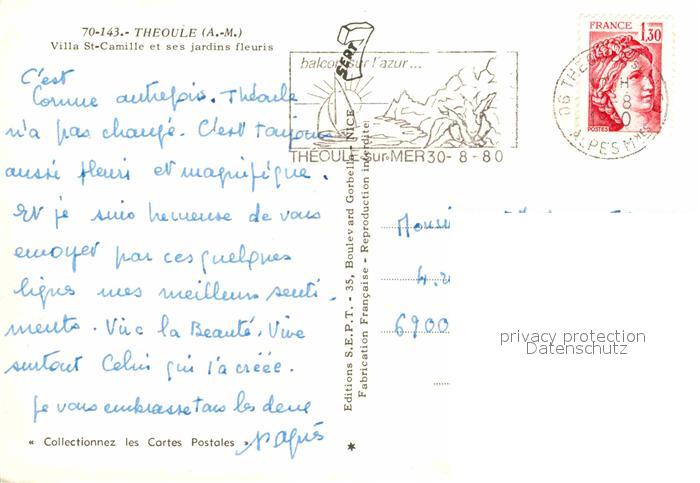 70-143.- THEOULE (A.-M.)
Villa St-Camille et ses jardins fleuris
C'est
Comme autrefois. Théoule
n'a pas changé. C'est toujours
aussi fleuri et magnifique.
Et je suis heureuse de vous
envoyer par ces quelques
lignes mes meilleurs senti-
ments. Vive la Beauté. Vive
surtout Celui qui l'a créée.
Je vous embrasse tous les deux
« Collectionnez les Cartes Postales »
Editions S.E.P.T. - 35, Boulevard Gorbella - NICE
Fabrication Française - Reproduction interdite
balcon sur l'azur...
SEPT
THEOULE-sur-MER 30-8-80
06 THE
ALPES MMES
FRANCE
1,30
POSTES
Monsi
6900
privacy protection
Datenschutz